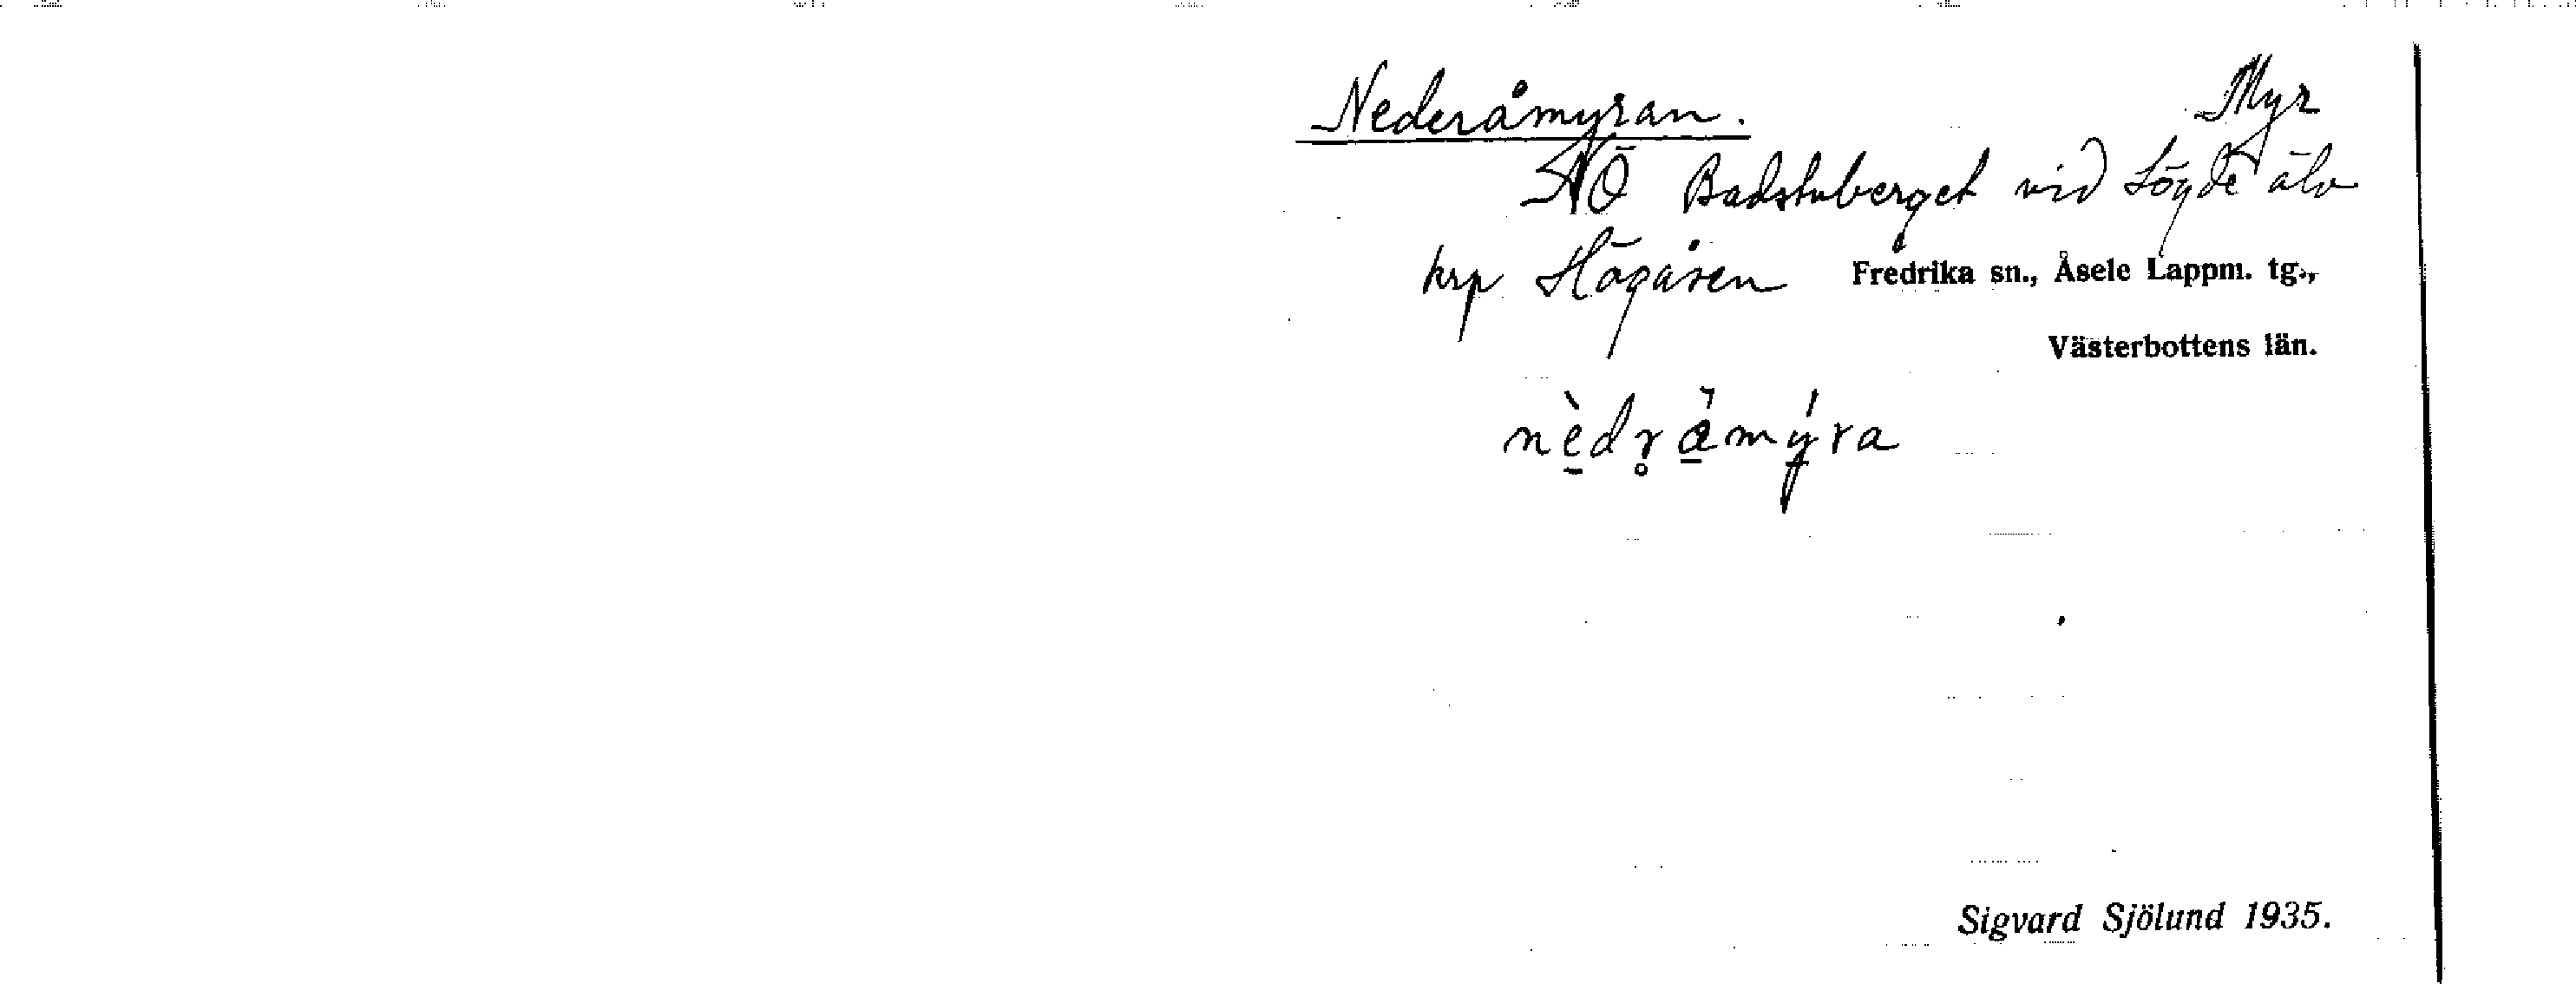 Nederåmyran. Myr
NÖ Badstuberget vid Lögde älv
krp Högåsen Fredrika sn., Åsele Lappm. tg.,
Västerbottens län.
nè̱dr̥å̱mý̱ra
Sigvard Sjölund 1935.